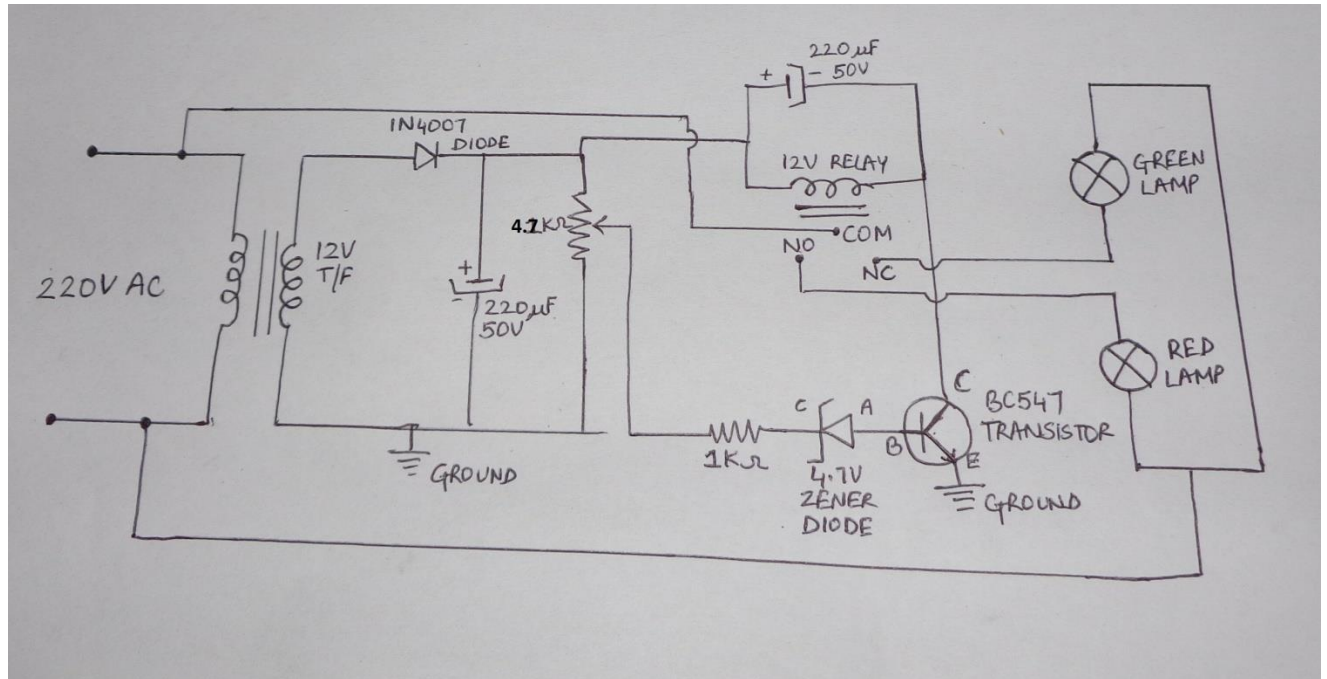 220μF
+
- 50V
1N4007
DIODE
12V RELAY
GREEN
LAMP
4.7KΩ
COM
NO
NC
12V
T/F
220V AC
+
-
220μF
50V
RED
LAMP
C
BC547
TRANSISTOR
C
A
B
E
1KΩ
4.7V
ZENER
DIODE
GROUND
GROUND